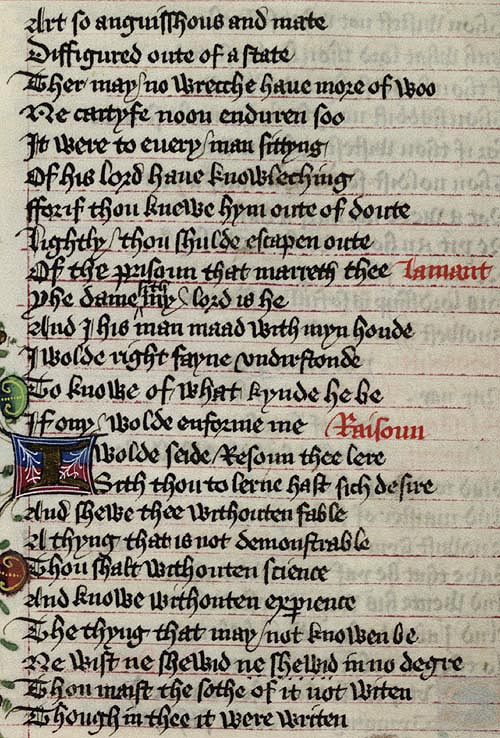 Art so anguisshous and mate
Diffigured oute of a state
Ther may no wrecche haue more of woo
Ne caityfe noon enduren soo
It were to euery man sittyng
Of his lord haue knowleching
fforif thou knewe hym oute of doute
lightly thou shulde escapen oute
Of the prisoun that marreth thee lamant
Yhe dame sith my lord is he
And I his man maad with myn honde
I wolde right fayne vndirstonde
To knowe of what kynde he be
If ony wolde enforme me Raisoun
I wolde seide Resoun thee lere
Sith thou to lerne hast sich desire
And shewe thee withouten fable
A thyng that is not demonstrable
Thou shalt withouten science
And knowe withouten experience
The thyng that may not knowen be
Ne wist ne shewid ne shewid in no degre
Thou maist the sothe of it not witen
Though in thee it were writen